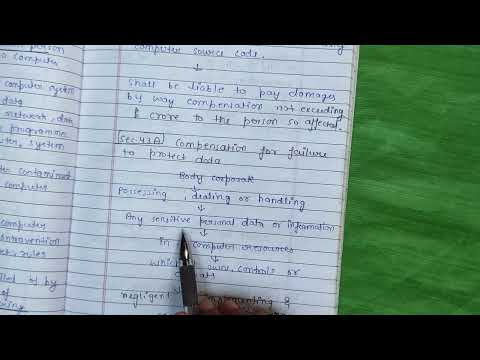 person
computer
computer system
data
network, data
programme
system
contaminant
computer
computer
contravention
rules
of by
of
computer source code.
↓
shall be liable to pay damages
by way compensation not exceeding
1 crore to the person so affected.
Sec-43A Compensation for failure
to protect data
Body corporate
↓
Possessing, dealing or handling
↓
Any sensitive personal data or information
↓
In computer resources
↓
which own, controls or
negligent &